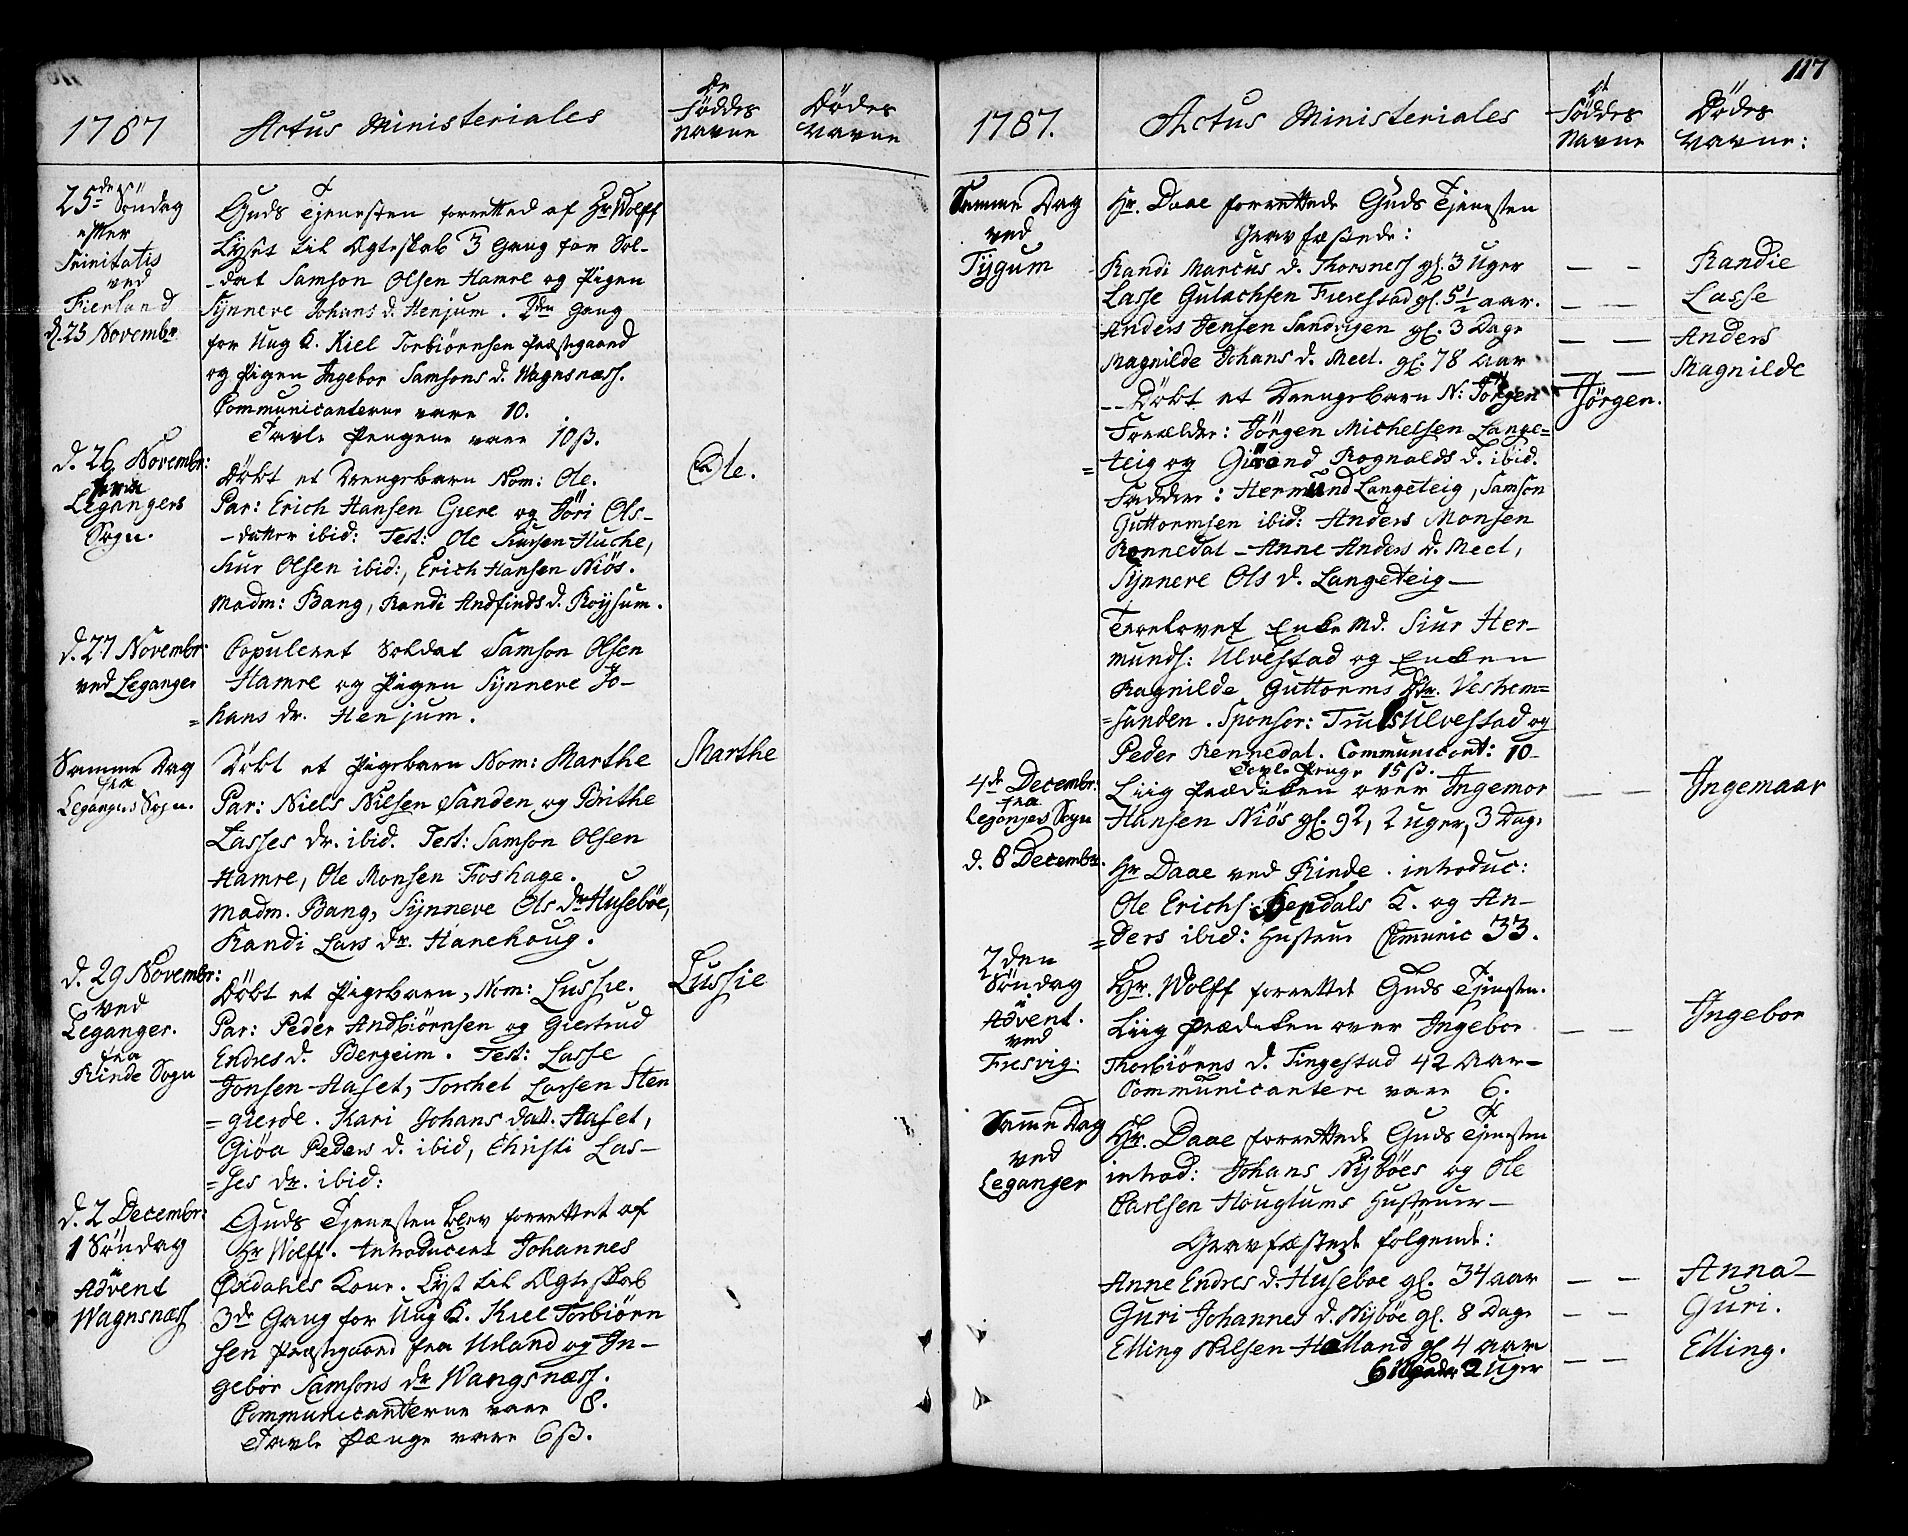 1787
Actus Ministeriales
De Föddes Navne
Dödes Navne
25de Söndag
efter
Trinitatis
ved
Fierland
d. 25 Novembr
Guds Tjenesten forretted af Hr Wolff
Lyset til Ægteskab 3 Gang for Sol-
-dat Samson Olsen Hamre og Pigen
Synnere Johans d. Henjum. 2den Gang
for Ung K. Kiel Torbiörnsen Præstegaard
og Pigen Ingebor Samsons d. Wagnsnæss.
Communicanterne vare 10.
Tavle Pengene vare 10ß.
d. 26 Novembr:
Legangers
Sogn.
Döbt et Drengebarn Nom: Ole.
Ole.
Par: Erich Hansen Giere og Jöri Ols-
-datter ibid: Test: Ole Siursen Huche,
Siur Olsen ibid:, Erich Hansen Niös.
Madm: Bang, Randi Andfinds d. Röysum.
d. 27 Novembr:
ved Leganger
Copuleret Soldat Samson Olsen
Hamre og Pigen Synnere Jo-
=hans dr. Henjum.
Samme Dag
fra
Legangers Sogn.
Döbt et Pigebarn Nom: Marthe
Marthe
Par: Niels Nilsen Sanden og Brithe
Lasses dr. ibid. Test: Samson Olsen
Hamre, Ole Monsen Foshage.
Madm. Bang, Synneve Ols dr Huseböe,
Randi Lars dr. Hanehoug.
d. 29 Novembr:
ved
Leganger.
fra
Rinde Sogn
Döbt et Pigebarn, Nom: Lussie.
Lussie
Par: Peder Andbiörnsen og Giertrud
Endres d. Bergeim. Test: Lasse
Jonsen Haset, Torchel Larsen Sten
=gierde. Kari Johans datt. Haset,
Giöa Peders d. ibid, Christi Las-
=ses dr. ibid:
d. 2 Decembr:
1 Söndag
i
Advent
Wagnsnæss
Guds Tjenesten blev forrettet af
Hr Wolff. Introducert Johannes
Öxdahls Kone. Lyst til Ægteskab
3de Gang for Ung K. Kiel Torbiörn
sen Præstegaard fra Urland og In-
gebor Samsons dr Wangsnæss.
Communicanterne vare 8.
Tavle Pænge vare 6ß.
117
1787.
Actus Ministeriales
d. Föddes Navne
Dödes Navne:
Samme Dag
ved
Tygum
Hr. Daae forrettede Guds Tjenesten
Gravfæstede:
Randi Marcus d. Thorsness gl. 3 Uger
Randie
Lasse Gulachsen Fierestad gl. 5½ aar.
Lasse
Anders Jensen Sandvigen gl. 3 Dage
Anders
Magnilde Johans d. Meel. gl. 78 Aar
Magnilde
-- Döbt et Drengebarn N: Jörgen
Jörgen.
Forældre: Jörgen Michelsen Lange=
=teig og Giörond Rognalds d. ibid.
Faddere: Hermund Langeteig, Samson
Guttormsen ibid: Anders Monsen
Rennedal - Anne Anders d. Meel,
Synnere Ols d. Langeteig-
Trolovet Enke Md. Siur Her-
munds: Ulvestad og Enken
Ragnilde Guttorms Dtr. Vestrem=
=sanden. Sponsor: Truls Ulvestad og
Peder Rennedal. Communicant: 10-
Tavle Penge 15ß.
4de Decembr:
fra
Legangers Sogn
Liig Prædiken over Ingemor
Ingemaar
Hansen Niös gl. 92, 2 uger, 3 Dage
d. 8 Decembr.
Hr Daae ved Rinde. introduc:
Ole Erichs: Hepdals K. og An-
=ders ibid: Hustrue Comunic 33.
2den
Söndag
i
Advent.
ved
Fresvig.
Hr. Wolff forrettet Guds Tjenesten.
Liig Prædiken over Ingebor
Ingebor
Thorbiörns d. Tingestad 42 Aar-
Communicantere vare 6.
Samme Dag
ved
Leganger
Hr. Daae forrettede Guds Tjenesten
introd: Johans Nyböes og Ole
Carlsen Houglums Hustruer-
Gravfæstede fölgende:
Anne Endres d. Huseboe gl. 34 aar
Anna
Guri Johannes d. Nyböe gl. 8 Dage
Guri.
Elling Nilsen Hålland gl 4 aar
Elling.
6 Maaneder 2 Uger